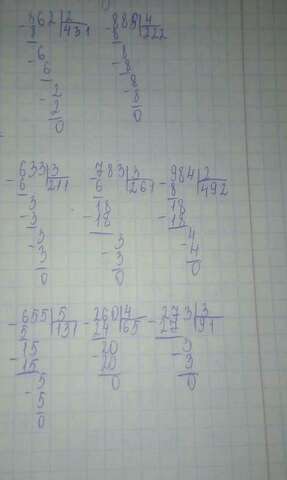 - 862 2 - 888 4
8 431 8 222
- 6 - 8
6 8
- 2 - 8
2 8
0 0
- 633 3 - 783 3 - 984 2
6 211 6 261 8 492
- 3 - 18 - 18
3 18 18
- 3 - 3 - 4
3 3 4
0 0 0
- 655 5 - 260 4 - 273 3
5 131 24 65 27 91
- 15 - 20 - 3
15 20 3
- 5 0 0
5
0